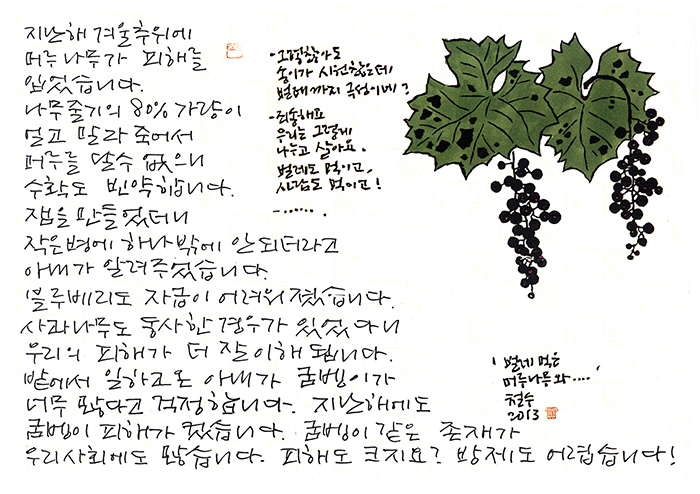 지난해 겨울추위에
머루나무가 피해를
입었습니다.
나무줄기의 80% 가량이
얼고 말라 죽어서
머루를 달수 없으니
수확도 빈약합니다.
잼을 만들었더니
작은병에 하나밖에 안되더라고
아내가 알려주었습니다.
블루베리도 자금이 어려워졌습니다.
사과나무도 동사한 경우가 있었다니
우리의 피해가 더 잘 이해 됩니다.
밭에서 일하고온 아내가 굼벵이가
너무 많다고 걱정합니다. 지난해에도
굼벵이 피해가 컸습니다. 굼벵이같은 존재가
우리사회에도 많습니다. 피해도 크지요? 방제도 어렵습니다!
-그렇찮아도
송이가 시원찮은데
벌레까지 극성이네?
-죄송해요
우리는 그렇게
나누고 살아요.
벌레도 먹이고,
사람도 먹이고!
-.......
'벌레 먹은
머루나무와....'
철수
2013